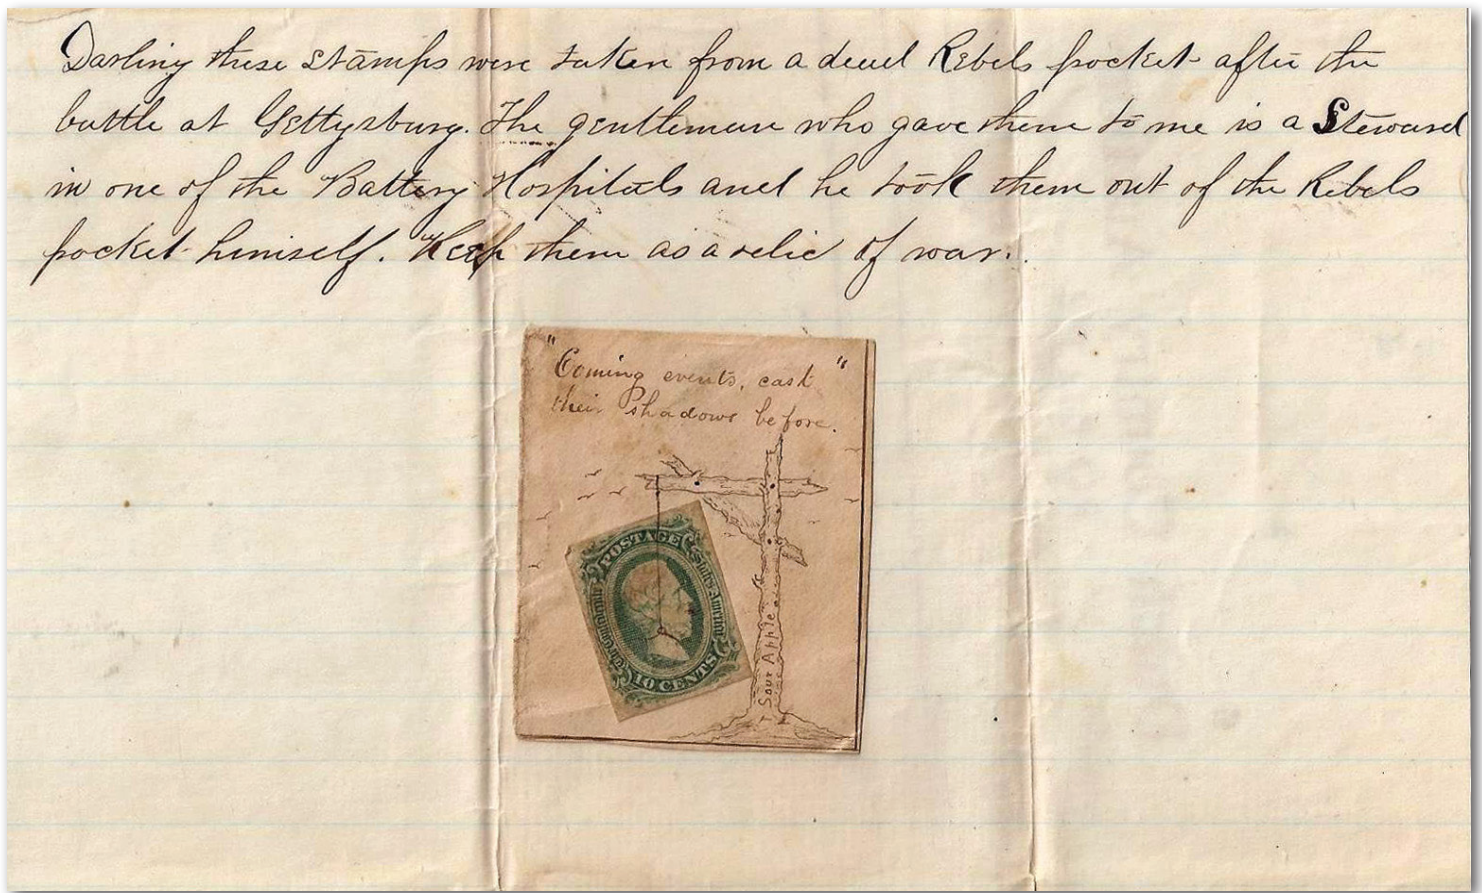 Darling these stamps were taken from a dead Rebels pocket after the
battle at Gettysburg. The gentleman who gave them to me is a Steward
in one of the Battery Hospitals and he took them out of the Rebels
pocket himself. Keep them as a relic of war.
"Coming events, cast "
their shadows before.
POSTAGE
The Confederate
States of America
10 CENTS
Sour Apple